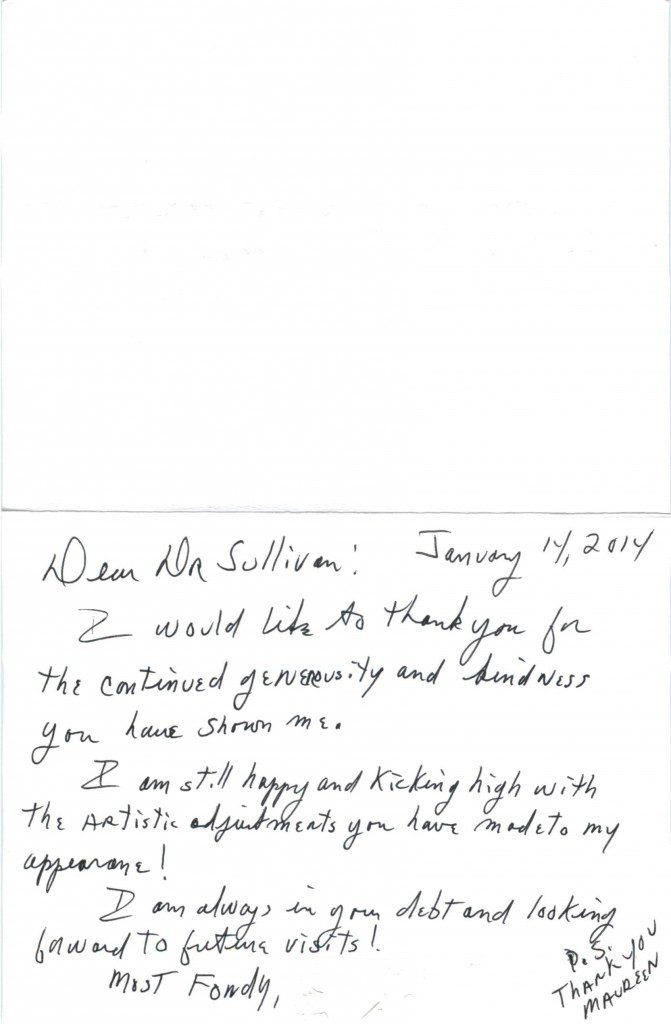 Dear DR Sullivan: January 14, 2014
I would like to thank you for
the continued generousity and kindness
you have shown me.
I am still happy and kicking high with
the artistic adjustments you have made to my
appearane!
I am always in your debt and looking
forward to future visits!
Most Fondy,
P.S.
Thank you
Maureen